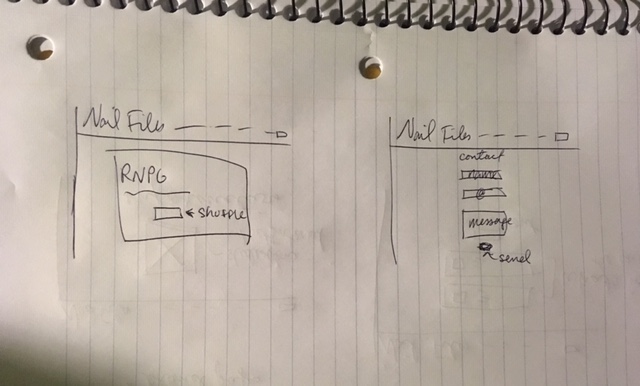 Nail Files
RNPG
shuffle
Nail Files
contact
name
@
message
send